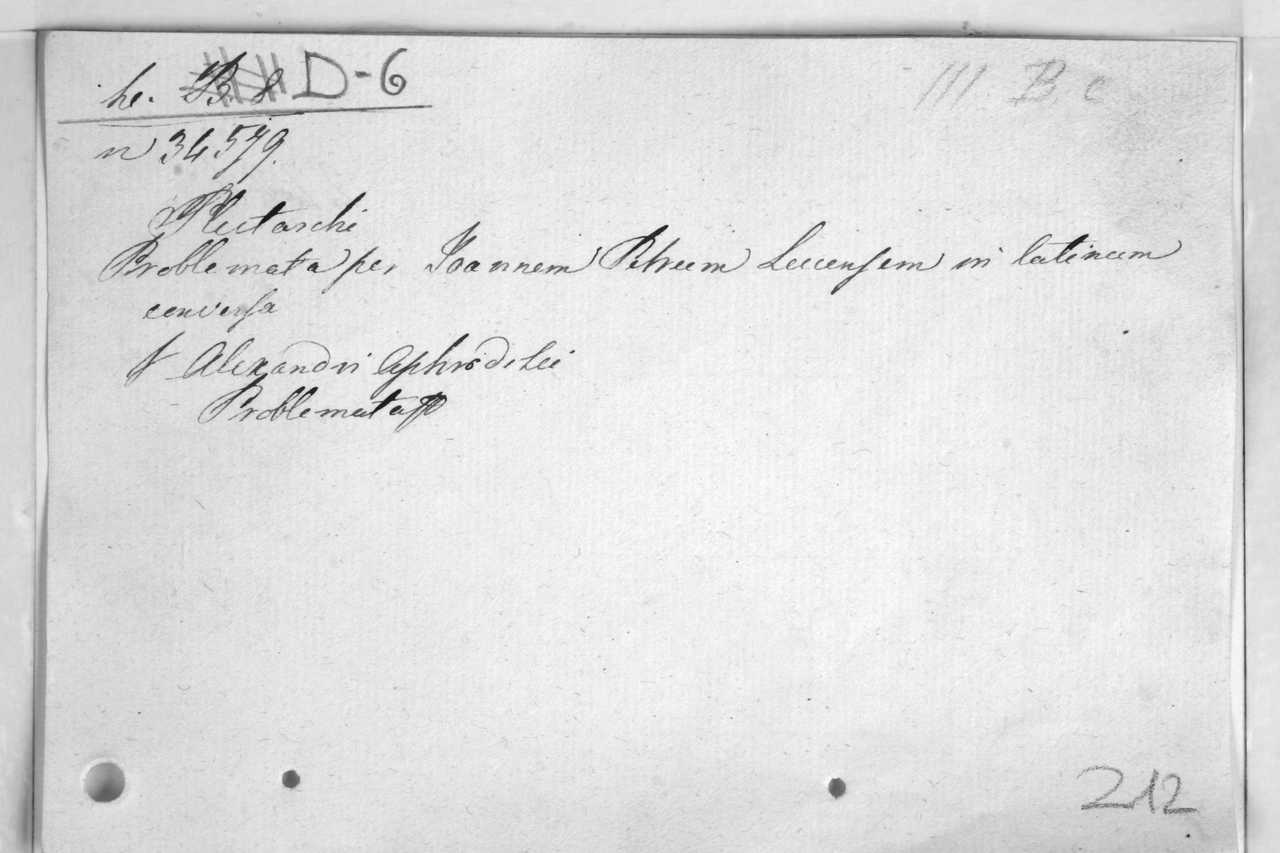 he. B. 8 D-6
III B. c
n 34579.
Plutarchi
Problemata per Joannem Petrum Lucensem in latinum
conversa
f Alexandri Aphrodisei
Problemata
212